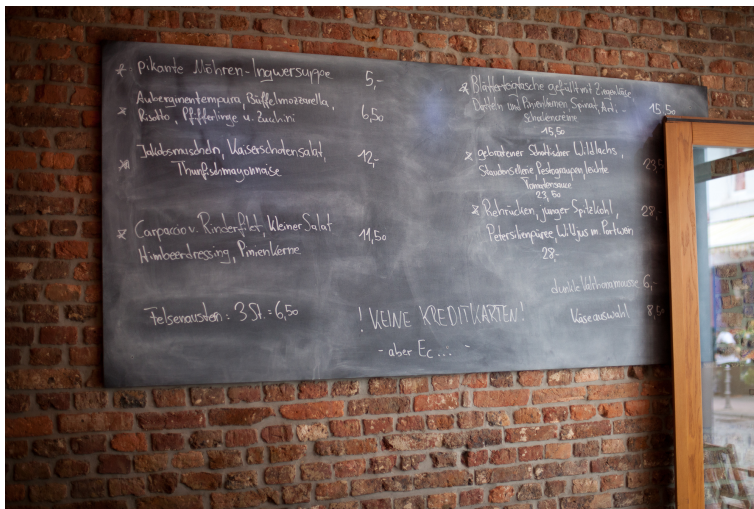 pikante Möhren-Ingwersuppe 5,-
Auberginentempura, Büffelmozzarella,
Risotto, Pfifferlinge u. Zucchini 6,50
Jakobsmuscheln, Kaiserschotensalat, 12,-
Thunfischmayonnaise
Carpaccio v. Rinderfilet, kleiner Salat 11,50
Himbeerdressing, Pinienkerne
Felsenaustern: 3 St. = 6,50
! KEINE KREDITKARTEN!
- aber Ec... -
Blätterteigtasche gefüllt mit Ziegenkäse,
Datteln und Pinienkernen, Spinat, 15,50
15,50
gebratener Schottischer Wildlachs, 23,5
Staudensellerie, Perlgraupen, leichte
Tomatensauce
23,50
Rehrücken, junger Spitzkohl, 28,-
Petersilienpüree, Wildjus m. Portwein
28,-
dunkle Valrhonamousse 6,-
Käseauswahl 8,5